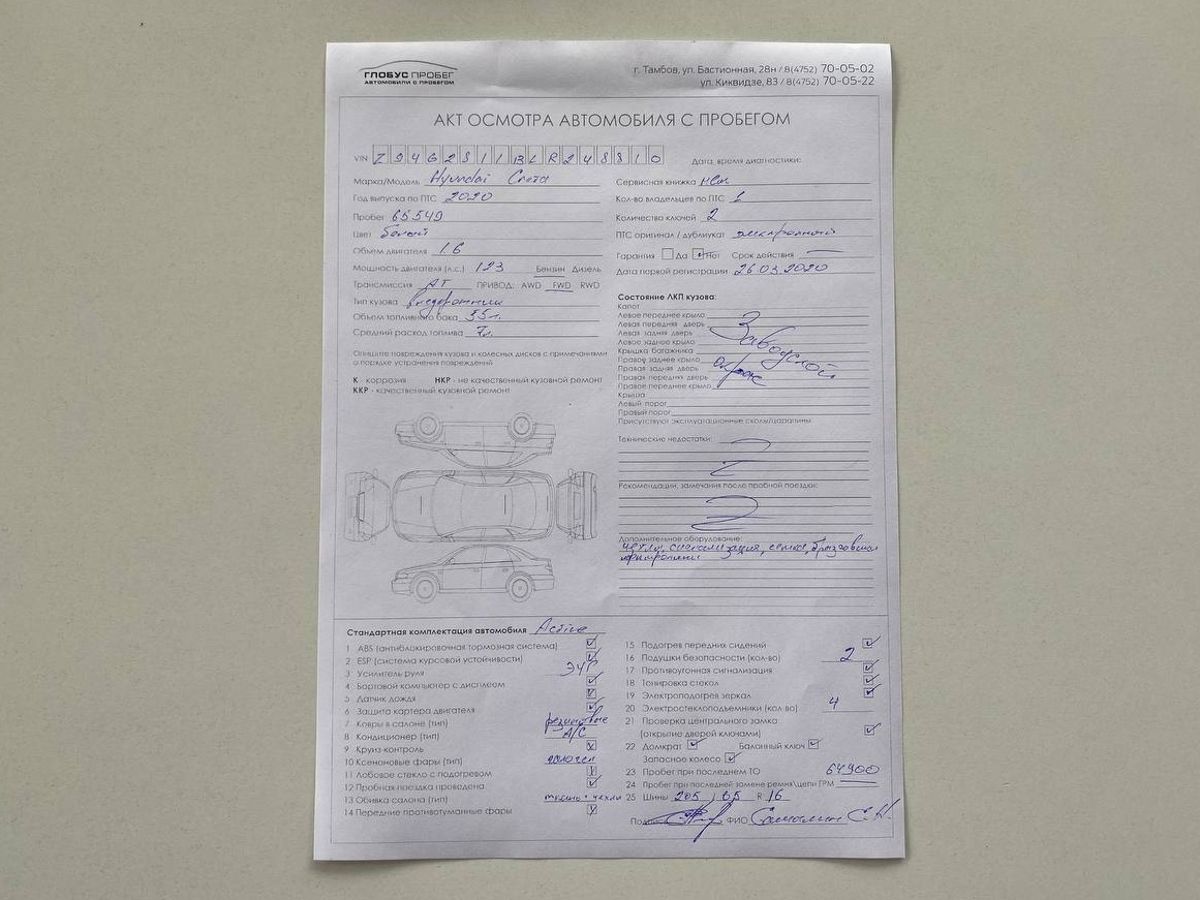 ГЛОБУС ПРОБЕГ
АВТОМОБИЛИ С ПРОБЕГОМ
г. Тамбов, ул. Бастионная, 28н / 8(4752) 70-05-02
ул. Киквидзе, 83 / 8(4752) 70-05-22
АКТ ОСМОТРА АВТОМОБИЛЯ С ПРОБЕГОМ
VIN Z94G2811BLR248810
Дата, время диагностики:
Марка/Модель Hyundai Creta
Год выпуска по ПТС 2020
Пробег 65549
Цвет белый
Объем двигателя 1.6
Мощность двигателя (л.с.) 123 Бензин Дизель
Трансмиссия АТ ПРИВОД: AWD FWD RWD
Тип кузова внедорожник
Объем топливного бака 55л.
Средний расход топлива 7л.
Сервисная книжка нет
Кол-во владельцев по ПТС 1
Количество ключей 2
ПТС оригинал / дубликат электронный
Гарантия Да Нет Срок действия —
Дата первой регистрации 26.03.2020
Опишите повреждения кузова и колесных дисков с примечаниями
о порядке устранения повреждений
К - коррозия НКР - не качественный кузовной ремонт
ККР - качественный кузовной ремонт
Состояние ЛКП кузова:
Капот
Левое переднее крыло
Левая передняя дверь
Левая задняя дверь
Левое заднее крыло
Крышка багажника
Правое заднее крыло
Правая задняя дверь
Правая передняя дверь
Правое переднее крыло
Крыша
Левый порог
Правый порог
Заводской
окрас
Присутствуют эксплуатационные сколы/царапины
Технические недостатки:
Рекомендации, замечания после пробной поездки:
Дополнительное оборудование:
чехлы, сигнализация, сетка, брызговики
Стандартная комплектация автомобиля Active
1 ABS (антиблокировочная тормозная система)
2 ESP (система курсовой устойчивости)
3 Усилитель руля ЭУР
4 Бортовой компьютер с дисплеем
5 Датчик дождя
6 Защита картера двигателя
7 Ковры в салоне (тип) резиновые
8 Кондиционер (тип) A/C
9 Круиз-контроль
10 Ксеноновые фары (тип) галоген
11 Лобовое стекло с подогревом
12 Пробная поездка проведена
13 Обивка салона (тип) ткань + чехлы
14 Передние противотуманные фары
15 Подогрев передних сидений
16 Подушки безопасности (кол-во) 2
17 Противоугонная сигнализация
18 Тонировка стекол
19 Электроподогрев зеркал
20 Электростеклоподъемники (кол-во) 4
21 Проверка центрального замка
(открытие дверей ключами)
22 Домкрат Балонный ключ
Запасное колесо
23 Пробег при последнем ТО 64900
24 Пробег при последней замене ремня\цепи ГРМ —
25 Шины 205 / 65 R 16
ФИО